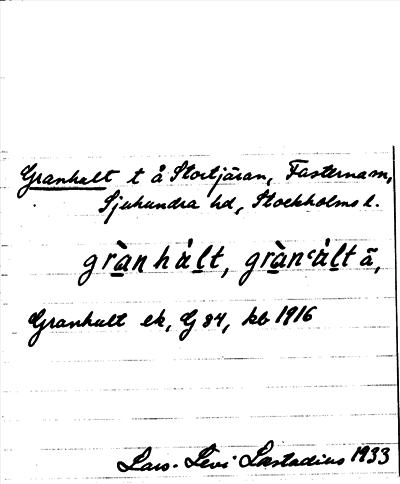 Granhult t å Stortjäran, Fasterna sn,
Sjuhundra hd, Stockholms l.
gràn hált, gràn‘ált ã,
Granhult ek, G 84, kb 1916
Lars-Levi Læstadius 1933